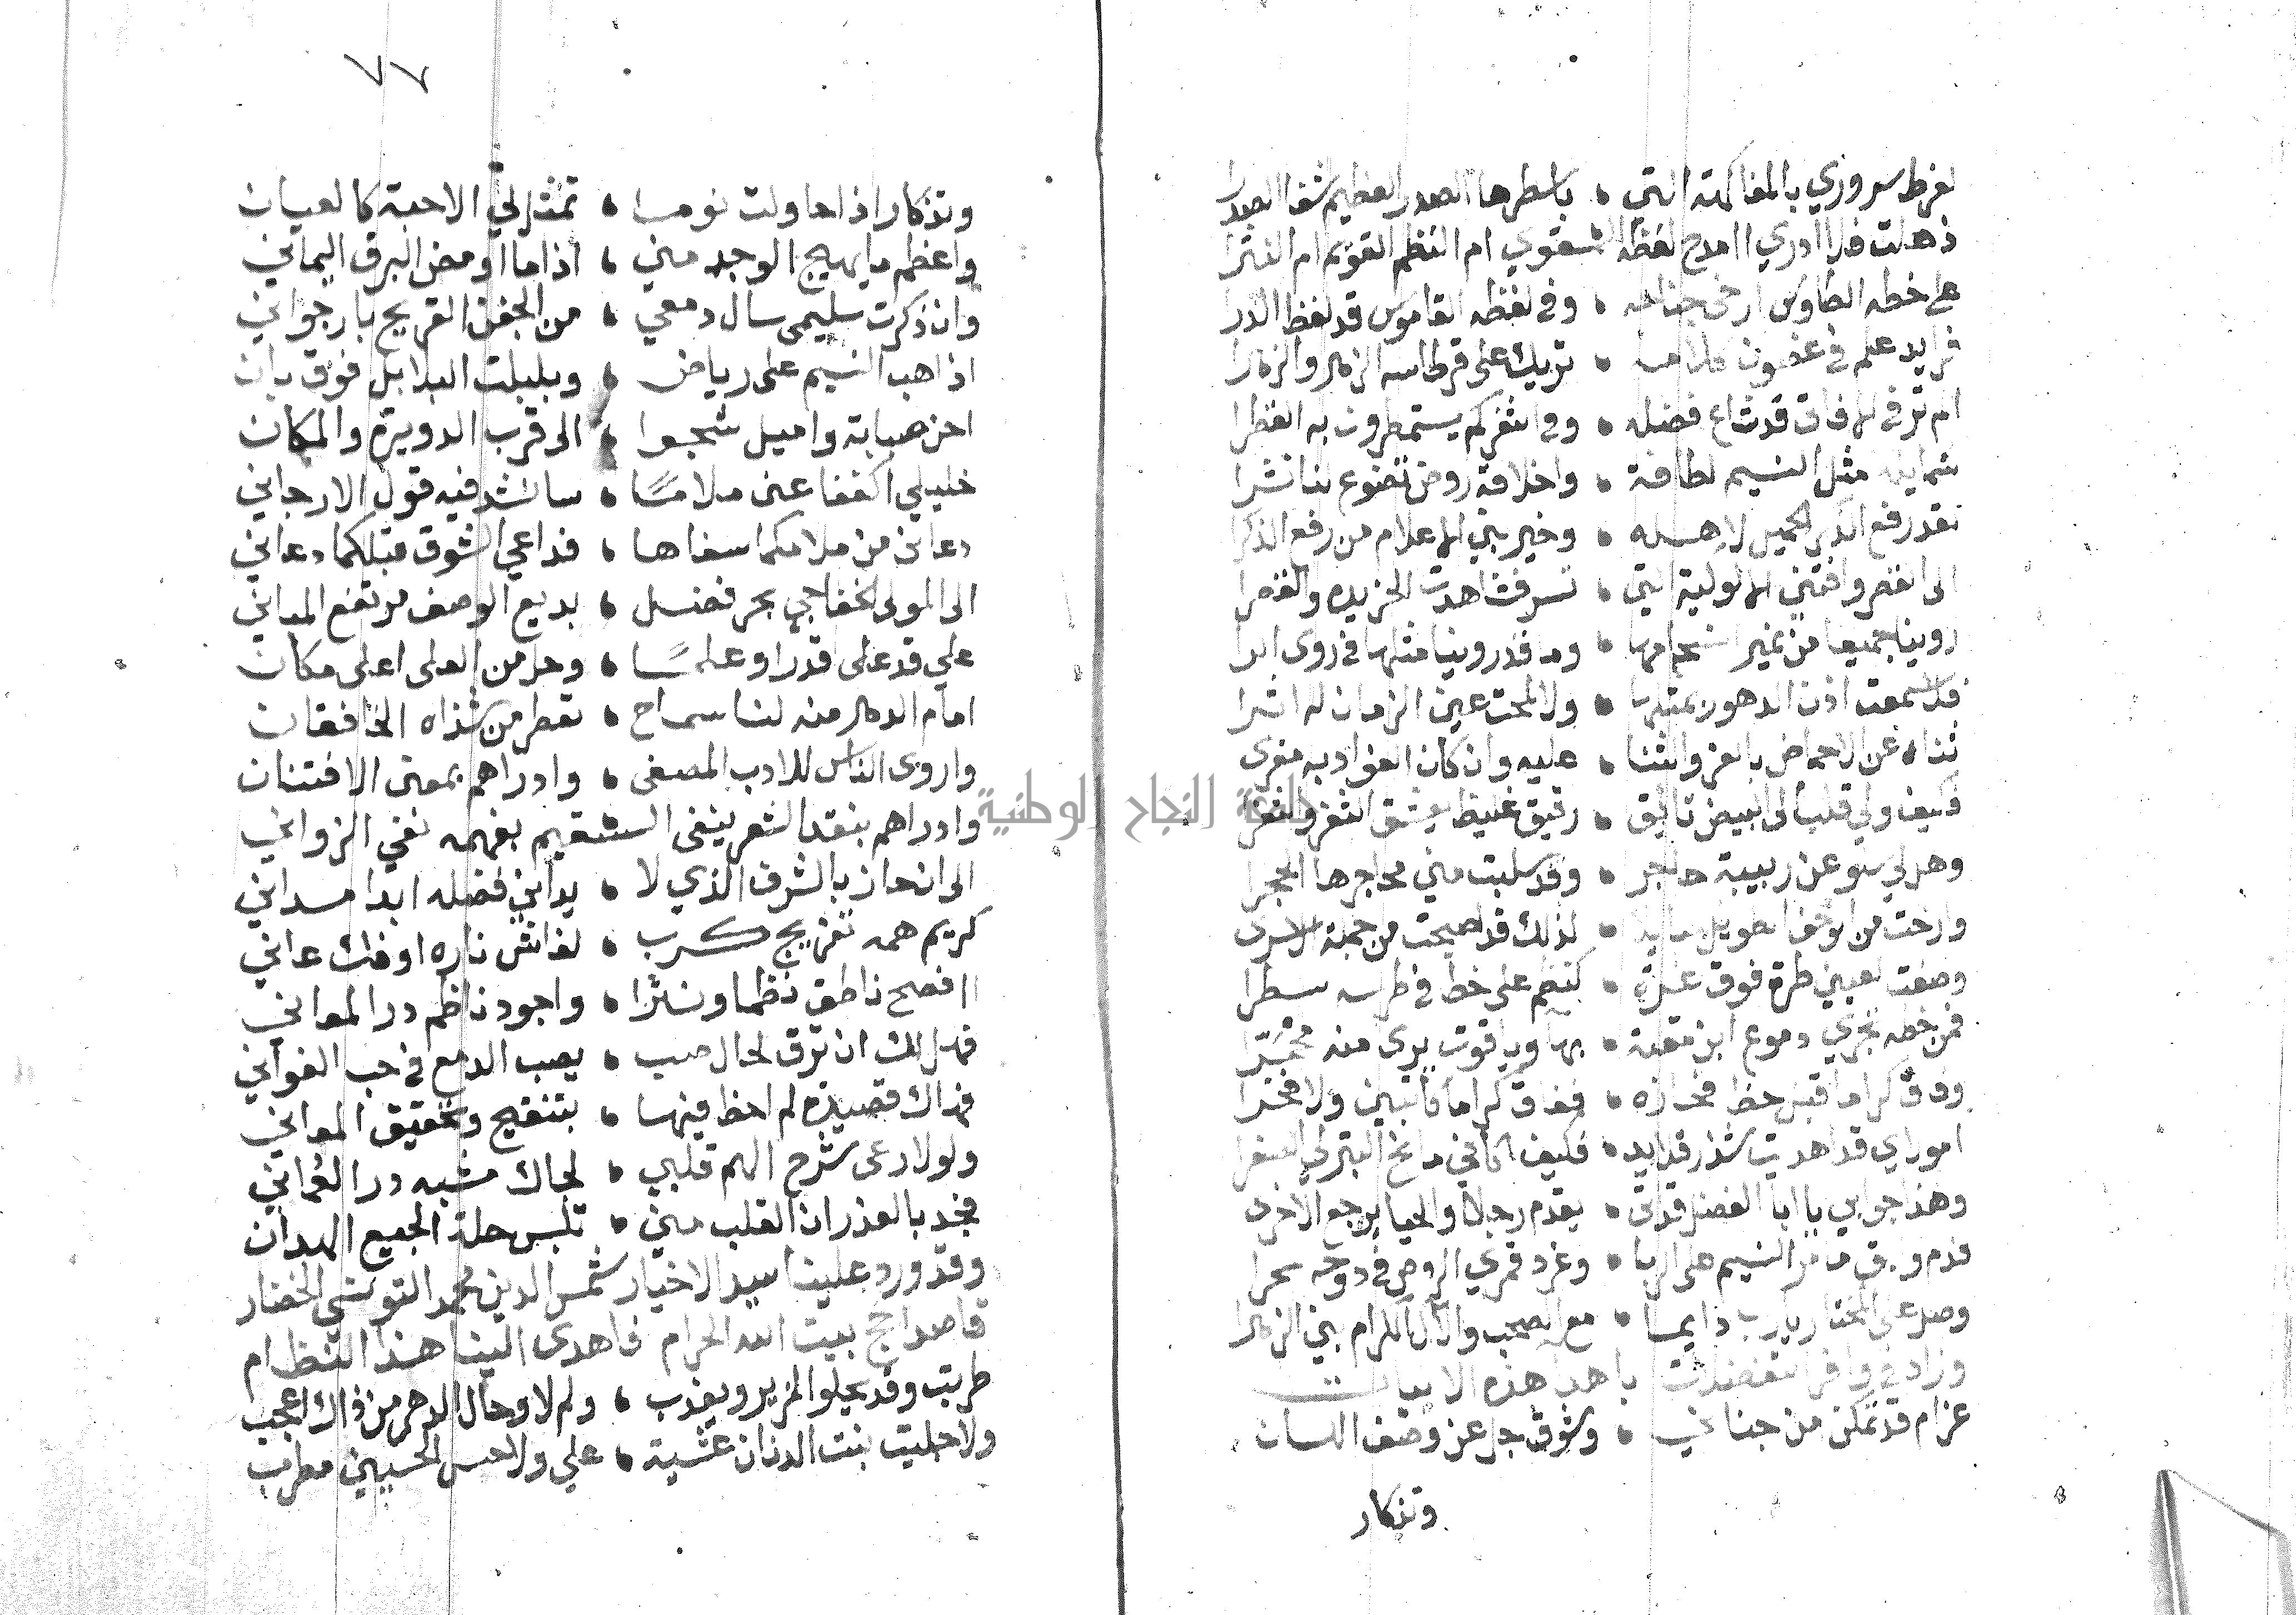 لفرط سروري بالمفاكهة التي • باسطرها الصدر العظيم شفا الصدرا
ذهلت فلا ادري اامدح لفظه الشقوي ام النظم القويم ام النثرا
على خطه الطاوس ارخى جناحه • وفي لفظه القاموس قد لفظ الدرا
فرايد علم في غصون كلامه • تريك على قرطاسه الزهر والزهرا
ام تر في الافاق قد شاع فضله • وفي الثغر كم يستمطرون به القطرا
شمايله مثل النسيم لطافة • واخلاقه روض تضوع لنا نشرا
لقد رفع الذكر الجميل لاهله • وخير بني الاعلام من رفع الذكرا
الى الغمر وافتني الالولية التي • نسر فشاهدت الخزيده والغمرا
روينا جميعا من نمير انسجامها • وما قد روينا مثلها في روى الرا
فلا سمعت اذن الدهور بمثلها • ولا لمحت عين الزمان له اثرا
ثناه عن الاحماض بالعز والثنا • عليه وان كان الفواد به مغرى
فكيف ولي قلب الى البيض تايق • رقيق غليظ يعشق الثغر والثغرا
وهل لي سلو عن ربيبة حاجر • وقد سلبت مني محاجرها الحجرا
وارخت من الوحف الطويل • لذلك قد اصبحت من جملة الاسرى
وصفت لعيني طرة فوق غرة • كنظم على خط في طرسه سطرا
فمن خطه تجري دموع ابن مقلة • بها وياقوت يرى منه محمرا
وفاق كراما قبل حظ فحازه • ففاق كراما كاتبين ولا فخرا
امولاي قد اهديت شذر قلايد • فكيف اكافي مانح التبر لي الصفرا
وهذا جوابي يا ابا الفضل قد اتى • يقدم رجلا والحيا يرجع الاخرى
فدم وابق ما مر النسيم على الربا • وغرد قمري الروض في دوحه سحرا
وصل على المختار يارب دايما • مع الصحب والآل الكرام بني الزهرا
وزادني وافر التفضلات باهدا هذه الابيات
غرام قد تمكن من جناني • وشوق جل عن وصف اللسان
وتذكار
٧٧
وتذكار اذا حاولت نوما • تمثل لي الاحبة كالعيان
واعظم ما يهيج الوجد مني • اذا ما اومض البرق اليماني
وان ذكرت سليمى سال دمعي • من الجفن القريح بارجواني
اذا هب النسيم على رياض • وبلبلت البلابل فوق بان
احن صبابة واميل شجوا • الى قرب الدويرة والمكان
خليلي اكففا عني ملاما • سانشد فيه قول الارجاني
دعاني من ملامكما سفاها • فداعي الشوق قبلكما دعاني
الى المولى الخفاجي بحر فضل • بديع الوصف مرتفع المباني
علي قد على قدرا وعلما • وحل من العلى اعلى مكان
امام الدهر منه لنا سماح • تعطر من شذاه الخافقان
واروى الناس للادب المصفى • وادراهم بمعنى الافتنان
وادراهم بنقد الشعر ينفى السقيم بفهمه نفي الزواني
الى ان حاز بالشرف الذي لا • يداني فضله ابدا مداني
كريم همه تفريج كرب • لغاشي ناره او فك عاني
اافصح ناطق نظما ونثرا • واجود ناظم در المعاني
فهل لك ان ترق لحال صب • يصب الدمع في حب الغواني
فهاك قصيدة لم احظ فيها • بتنقيح وتحقيق المعاني
ولولا رعى سرح الهم قلبي • لجاك مشبه در العماني
فجد بالعذر ان القلب مني • تلبس حلة الجميع الهدان
وقد ورد علينا سيد الاخيار شمس الدين محمد التونسي الخضار
قاصدا حج بيت الله الحرام فاهدى الينا هذا النظام
طربت وقد يحلو المزير ويعذب • ولم لا وحال الدهر من ذاك اعجب
ولا جليت بنت الدنان عشية • علي ولا حس الحسيني مطرب